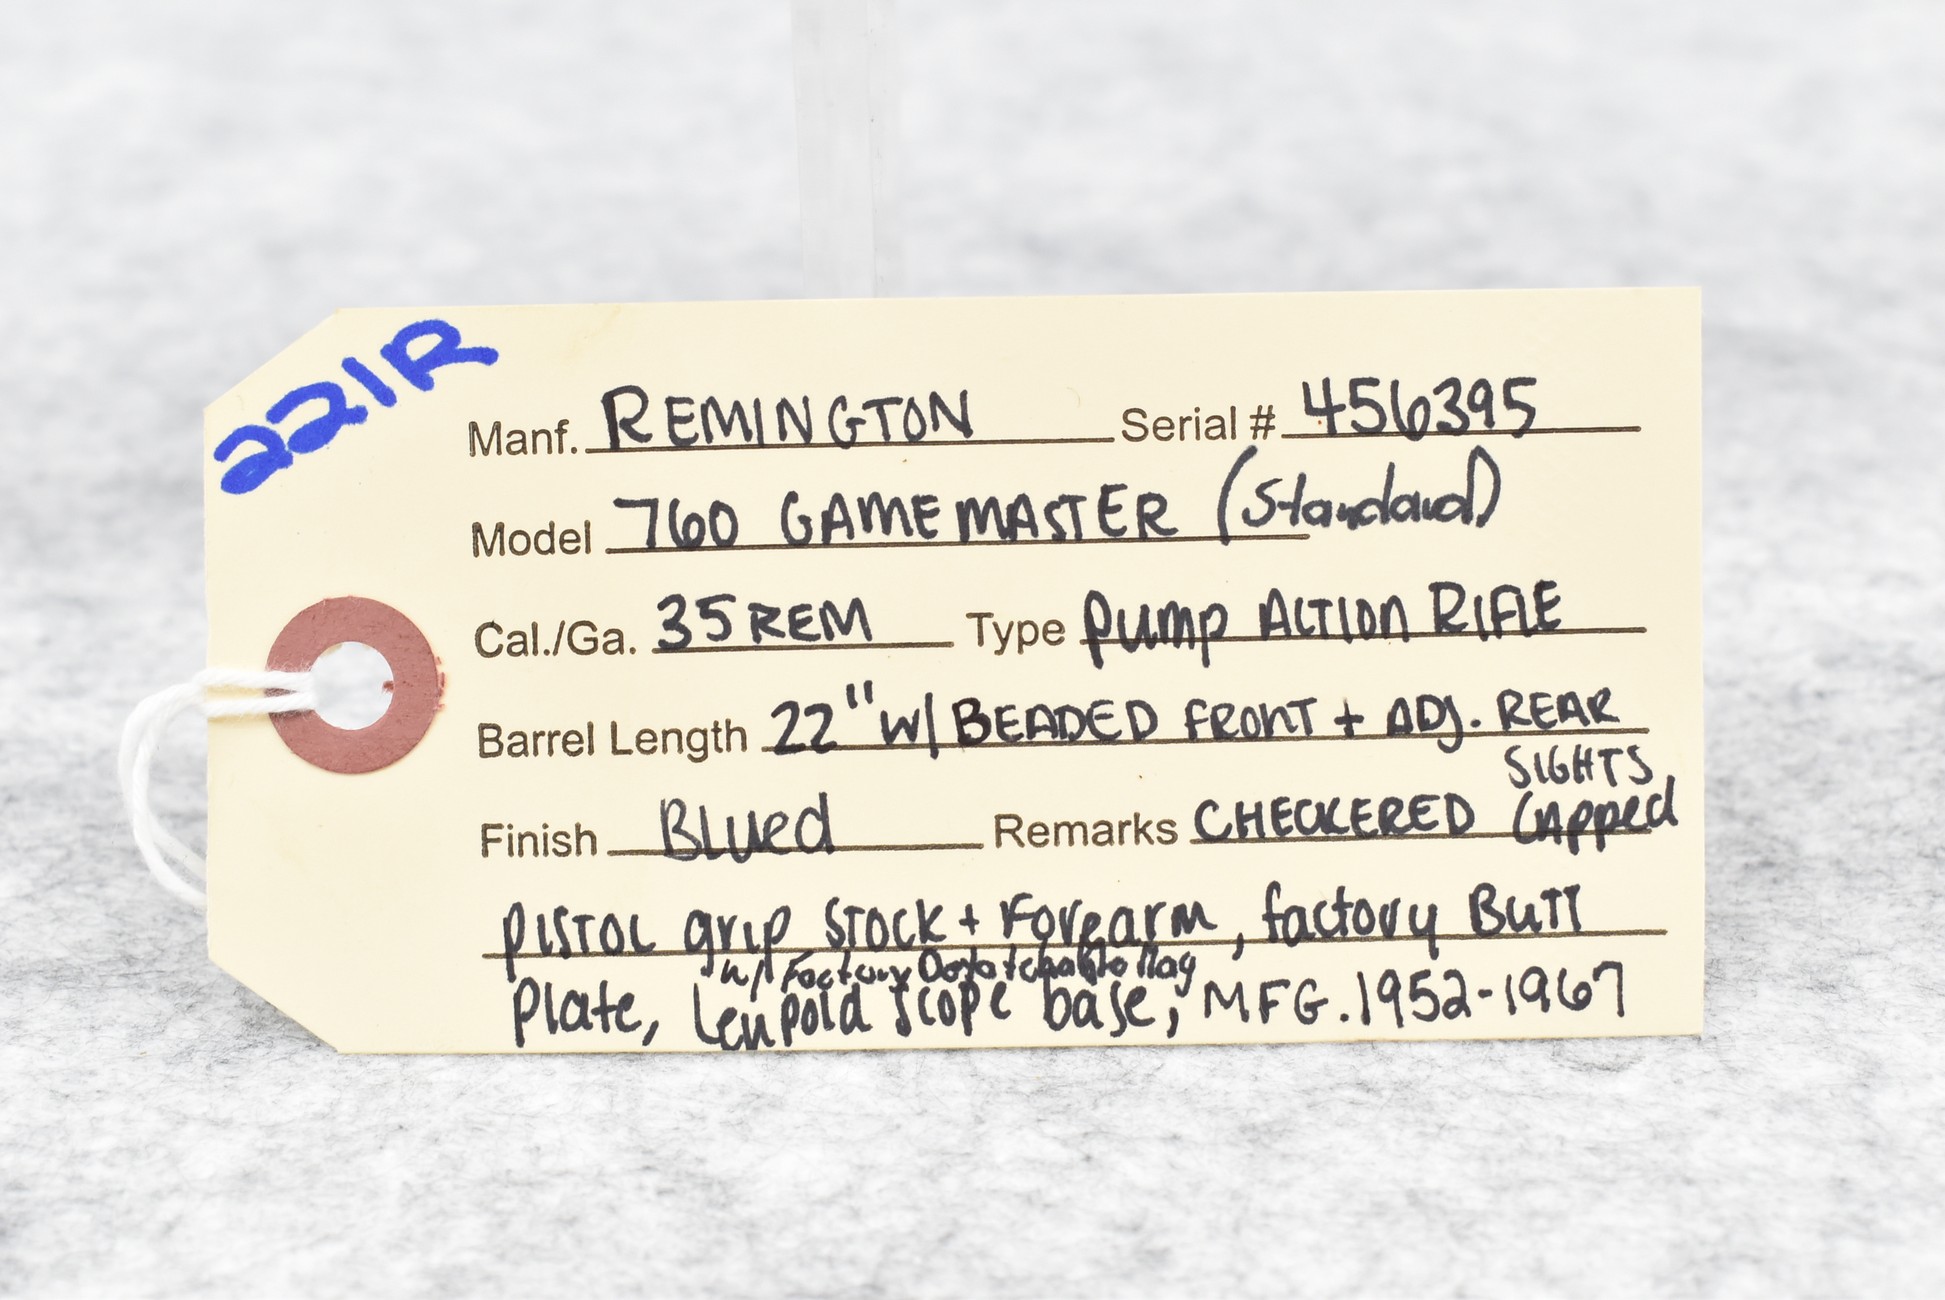 221R
Manf. REMINGTON Serial # 456395
Model 760 GAMEMASTER (Standard)
Cal./Ga. 35 REM Type Pump ACTION RIFLE
Barrel Length 22" w/ BEADED FRONT + ADJ. REAR
SIGHTS
Finish Blued Remarks CHECKERED Capped
PISTOL grip STOCK + Forearm, factory Butt
w/ Factory Detatchable Mag
Plate, Leupold scope base, MFG. 1952-1967